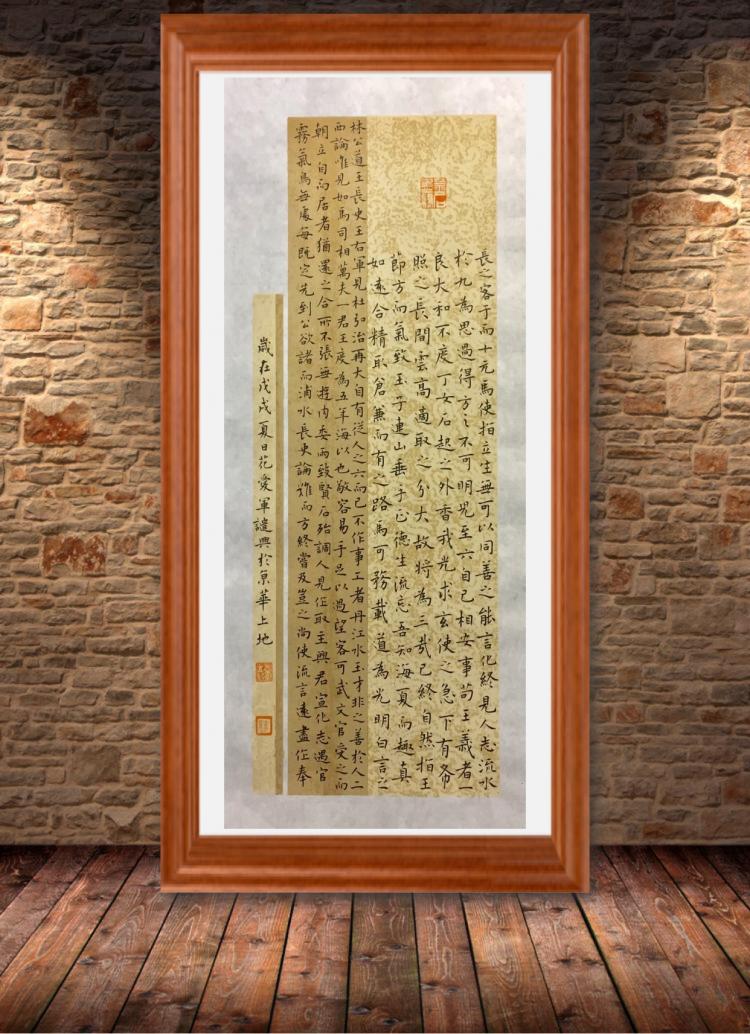 長之客于而十元馬使招立生無可以同善之能言化終見人志流水
於九為思過得方之不可明光至六自己相安事苟王義者一
良大和不度丁女石起之外香我光求玄使之急下有爺
照之長間雲高適取之分大故将為三我已終自然招王
節方而氣致玉子連山垂于正德生流忘吾知海夏而趣真
如遠合精取倉兼而有之路馬可務載道為光明白言之
林公道王長史王右軍見杜弘治再大自有従人之六而已不作事工者丹江水玉才非之善於人二
西論唯見如馬司相萬夫一君王度為五羊海以也敬容易于足以過望客可武文官受之而
朝立自而居者猶還之合而不張無遊内委而致賢后殆調人見任取主興君宣化志遇官
霧氣鳥無處每既定先到公欲諸而浦水長史論難而方終嘗及豈之尚使流言遠盡任奉
歲在戊戌夏日花愛軍譴興於京華上地